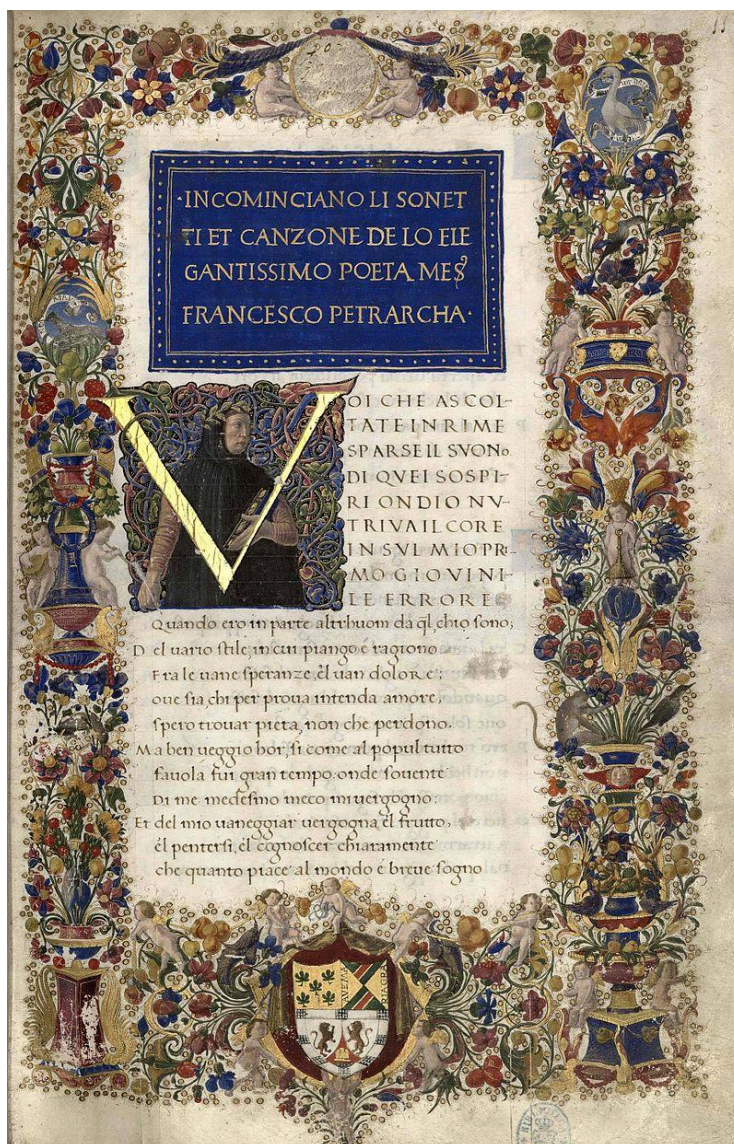 ·INCOMINCIANO LI SONET
TI ET CANZONE DE LO ELE
GANTISSIMO POETA MES
FRANCESCO PETRARCHA·
VOI CHE ASCOL-
TATE IN RIME
SPARSE IL SVONO
DI QVEI SOSPI-
RI ONDIO NV-
TRIVA IL CORE
IN SVL MIO PRI-
MO GIOVINI-
LE ERRORE
Quando ero in parte altrhuom da ql, chio sono;
Del uario stile, in cui piango e ragiono
Fra le uane speranze, el uan dolore;
oue sia, chi per prova intenda amore,
spero trouar pieta, non che perdono.
Ma ben ueggio hor, si come al popul tutto
fauola fui gran tempo: onde souente
Di me medesmo meco mi uergogno:
Et del mio uaneggiar uergogna el frutto,
el pentersi, el cognoscer chiaramente
che quanto piace al mondo e breue sogno
AVE MA
RIA GRA